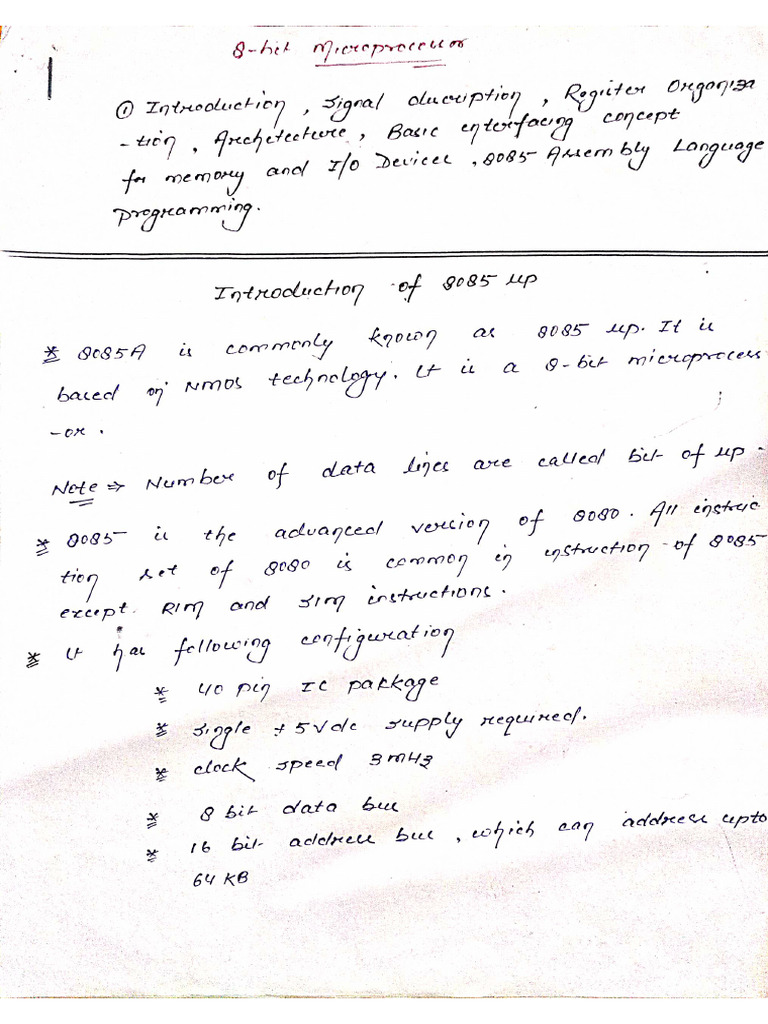 8-bit Microprocessor
1
① Introduction, Signal discription, Register Organiza
-tion, Architecture, Basic interfacing concept
for memory and I/O Devices, 8085 Assembly Language
programming.
Introduction of 8085 µp
* 8085A is commonly known as 8085 µp. It is
based on NMOS technology. It is a 8-bit microprocess
-or.
Note ⇒ Number of data lines are called bit of µp.
* 8085 is the advanced version of 8080. All instruc
tion set of 8080 is common in instruction of 8085
except RIM and SIM instructions.
* It has following configuration
* 40 pin IC package
* Single +5Vdc supply required.
* clock speed 3MHz
* 8 bit data bus
* 16 bit address bus, which can address upto
64 KB